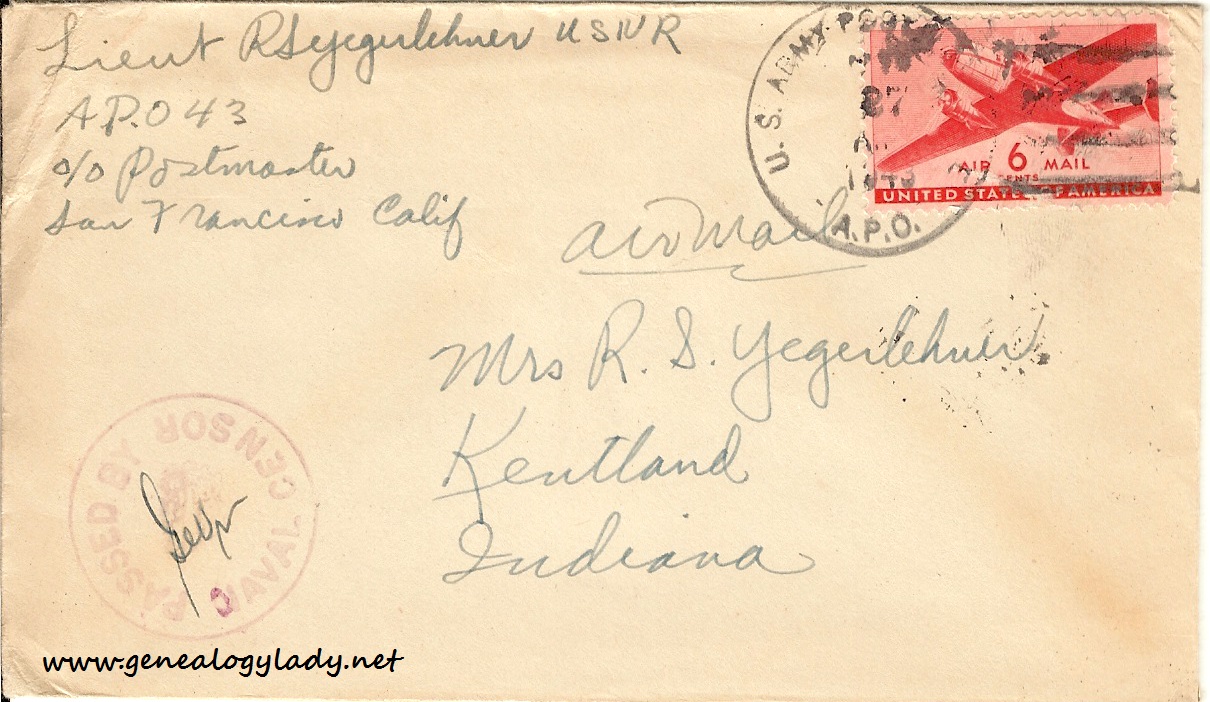 Lieut RSYegerlehner USNR
A.P.O 43
c/o Postmaster
San Francisco Calif
U.S. ARMY POSTAL
27
A.P.O.
AIR 6 MAIL
CENTS
UNITED STATES OF AMERICA
air mail
Mrs R. S. Yegerlehner
Kentland
Indiana
PASSED BY NAVAL CENSOR
www.genealogylady.net